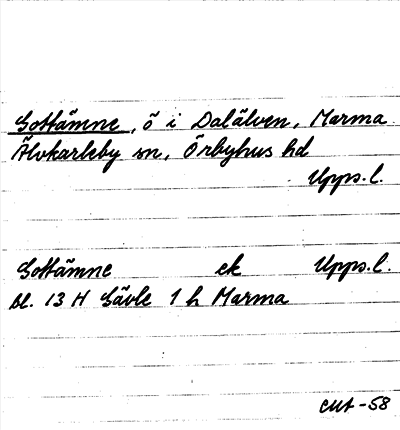 Gottämne, ö i Dalälven, Marma
Älvkarleby sn, Örbyhus hd
Upps. l.
Gottämne ek Upps. l.
bl. 13 H Gävle 1 h Marma
CUA -58